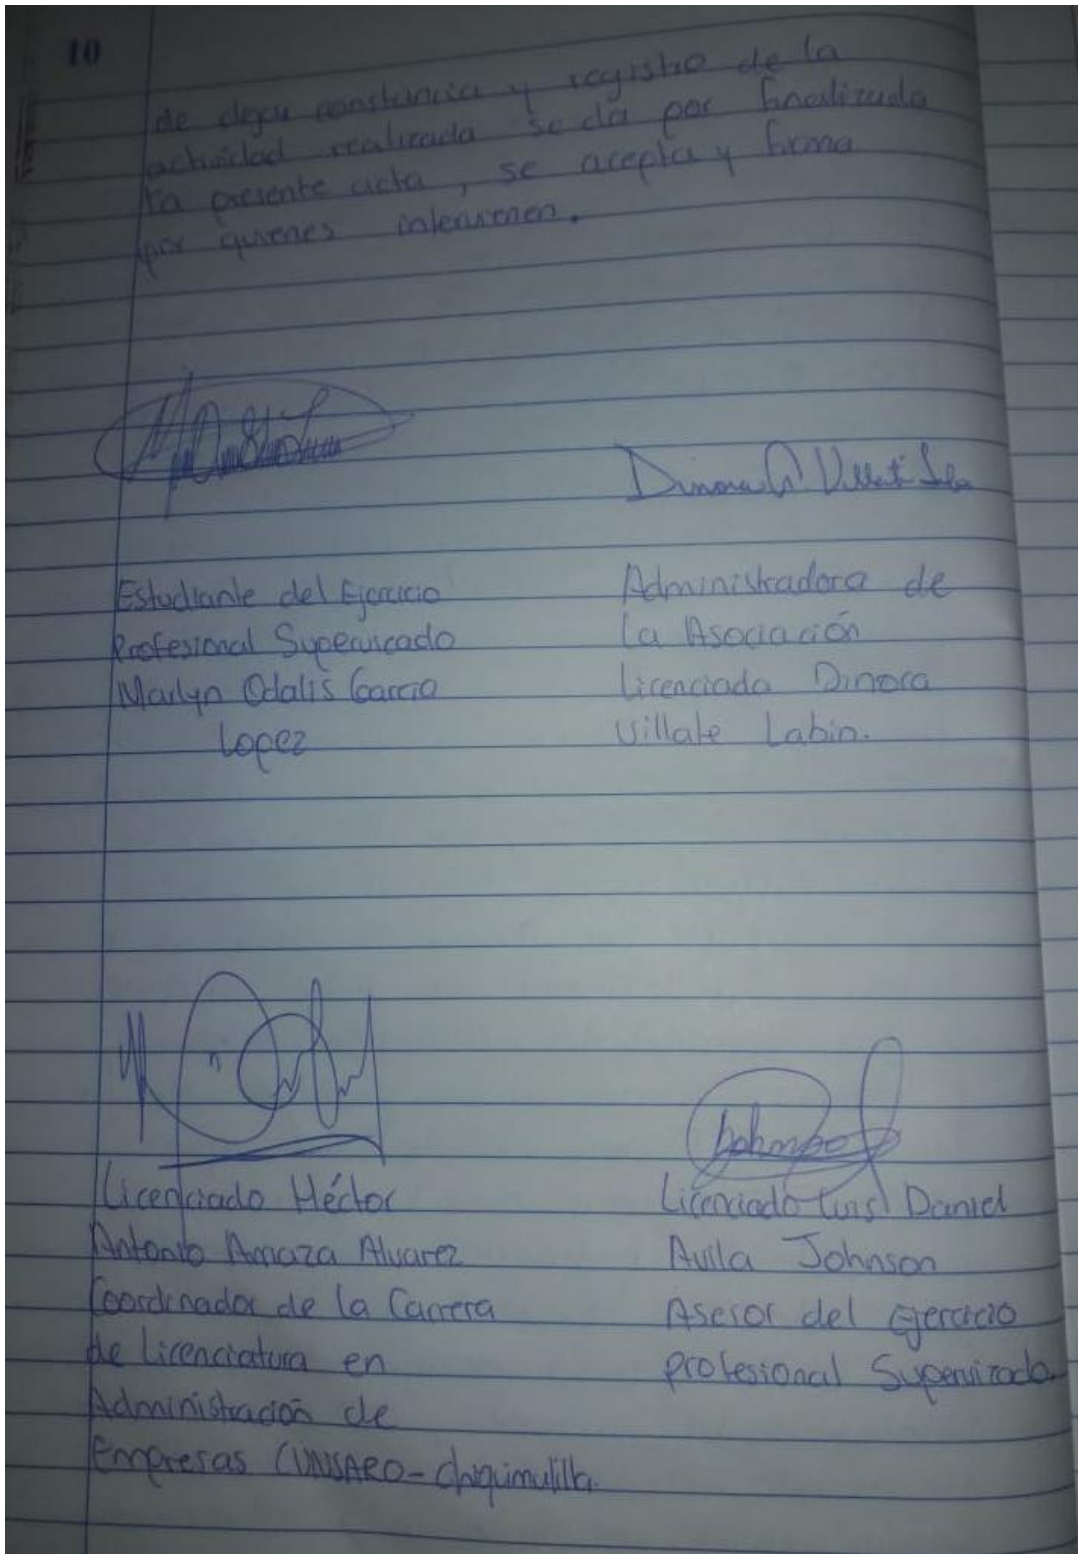 10
de dejar constancia y registro de la
actividad realizada se da por finalizada
la presente acta, se acepta y firma
por quienes intervienen.
Estudiante del Ejercicio
Profesional Supervicado
Marlyn Odalis Garcia
Lopez
Administradora de
La Asociación
Licenciada Dinora
Villate Labin.
Licenciado Héctor
Antonio Amaza Alvarez
Coordinador de la Carrera
de Licenciatura en
Administración de
Empresas CUNSARO-Chiquimulilla.
Licenciado Luis Daniel
Avila Johnson
Asesor del ejercicio
profesional Supervizado